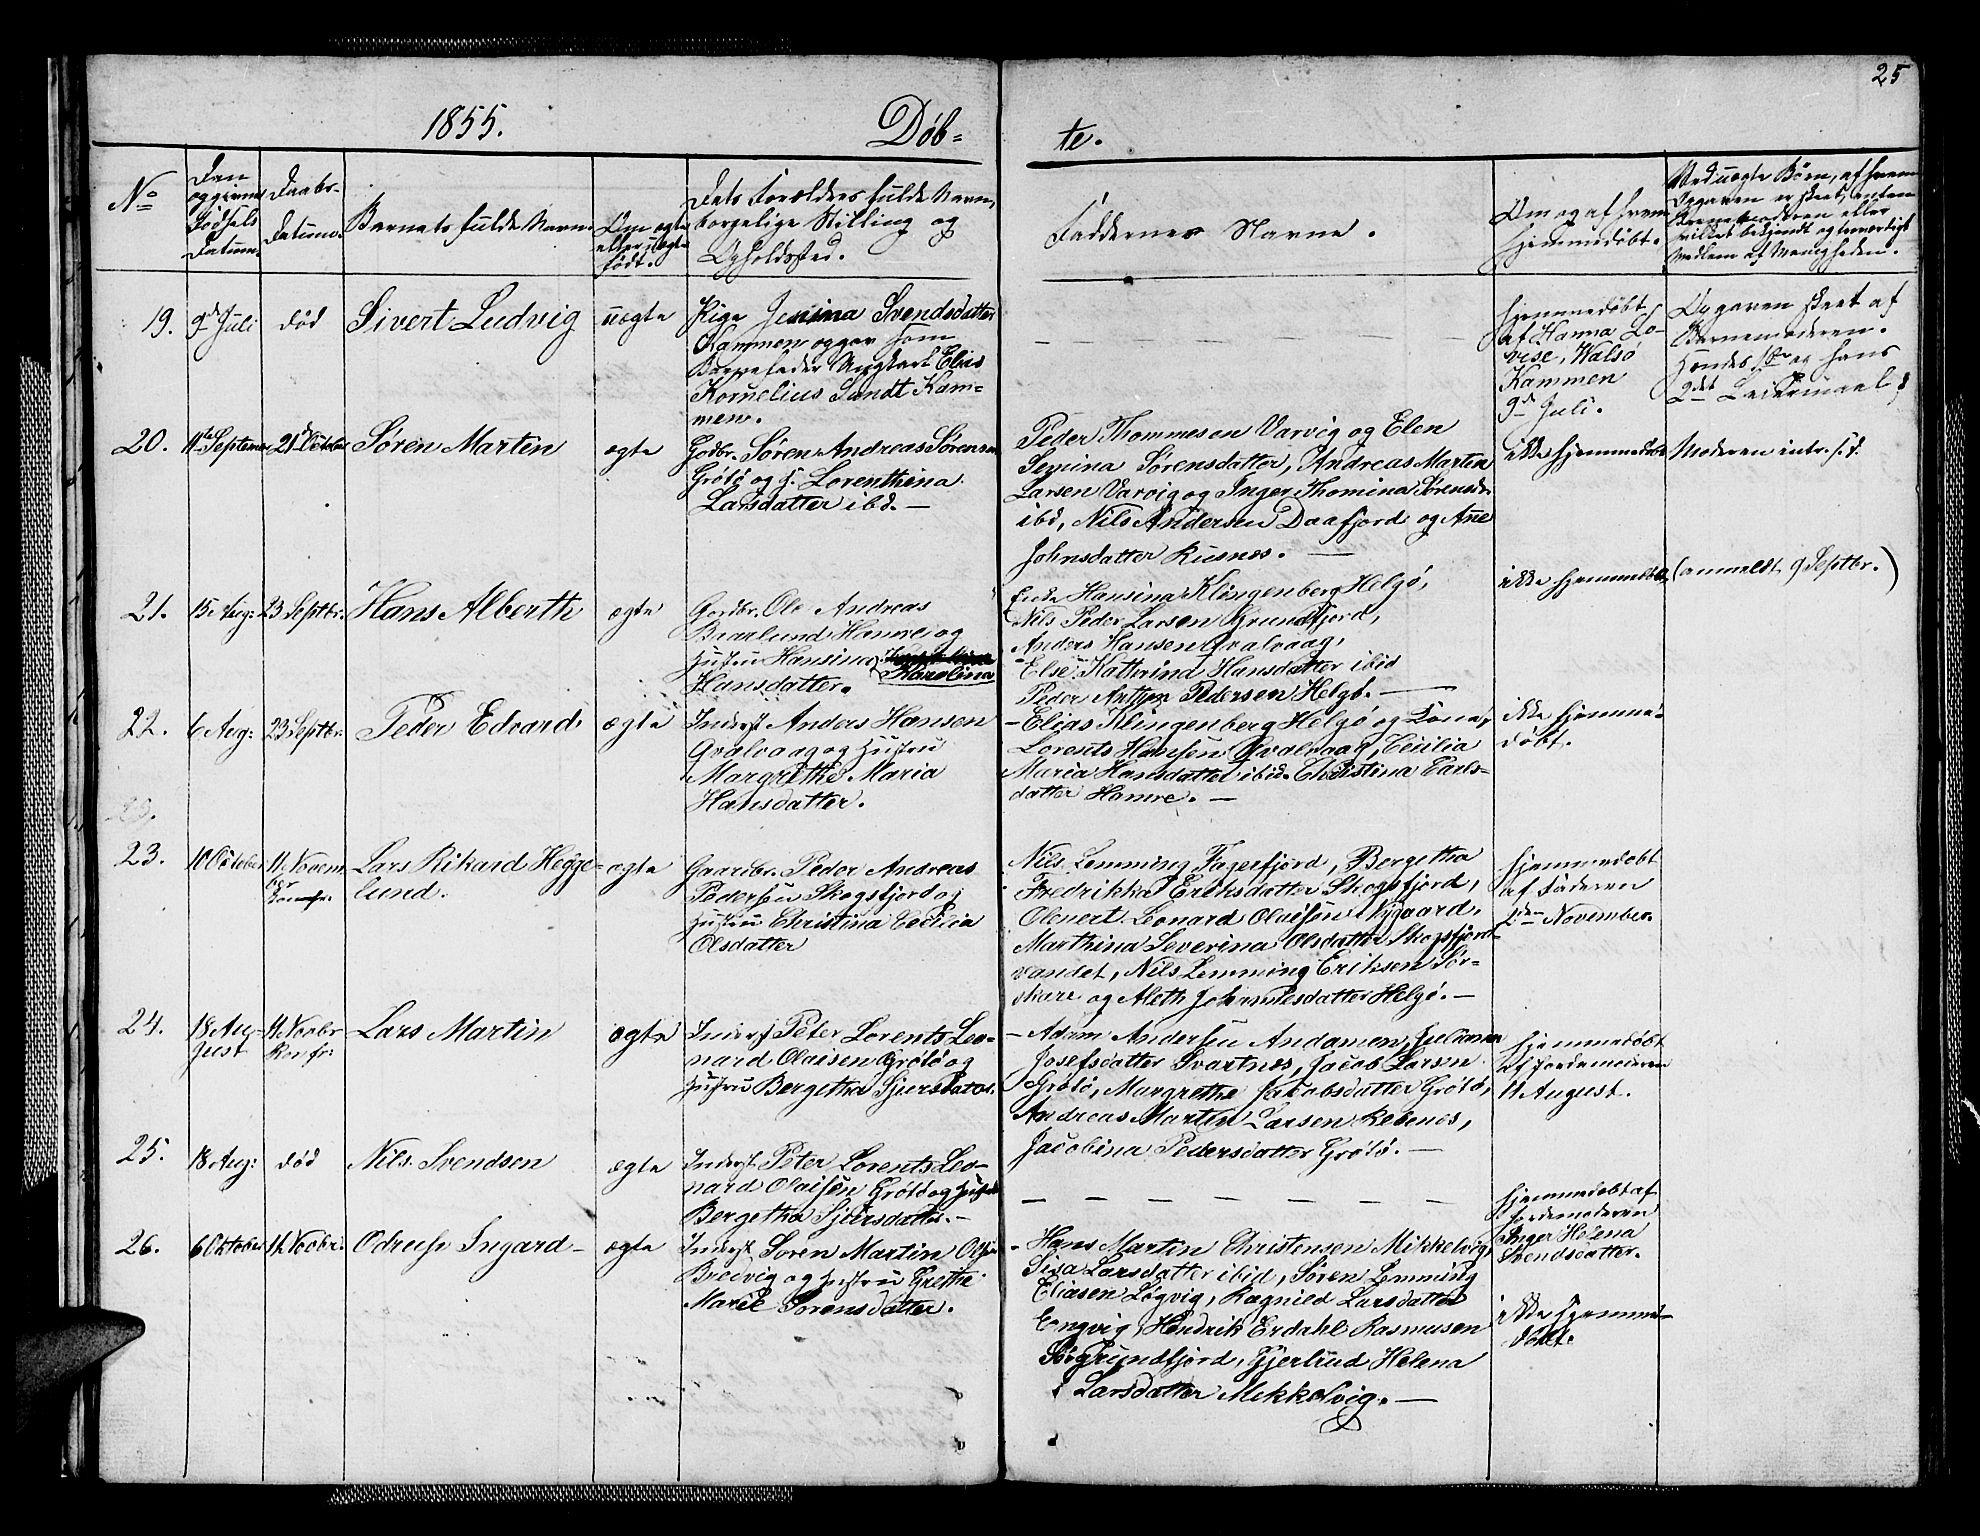 25
1855. Døb-
te.
No
Den
opgivne
Fødsels
Datum.
Daabs-
Datum.
Barnets fulde Navn.
Om ægte
eller uægte
født.
Dets Forældres fulde Navn,
borgelige Stilling og
Opholdssted.
Faddernes Navne.
Om og af hvem
hjemmedøbt.
Ved uægte Børn, af hvem
Opgaven er skeet, enten
Barnemoderen eller
hvilket bekjendt og troværdigt
Medlem af Menigheden.
19. 9de Juli død Sivert Ludvig uægte
Pige Jenina Svendsdatter
Kammen opgav som
Barnefader Ungkarl Elias
Kornelius Sundt Kam-
men.
Hjemmedøbt
af Hanna Lo-
vise, Kalsø
Kammen
9de Juli.
Opgaven skeet af
Barnemoderen.
Hendes 1ste og hans
2det Leiermaal.
20. 11te September 21de October Søren Martin ægte
Gdbr. Søren Andreas Sørensen
Grøtø og H. Lorenthina
Larsdatter ibd. —
Peder Thommesen Varvig og Elen
Semina Sørensdatter, Andreas Martin
Larsen Varvig og Inger Thomina Sørensdr
ibd, Nils Andersen Daafjord og Ane
Johnsdatter Rusnes. —
ikke hjemmedøbt
Moderen intr. s. d.
21. 15 Aug: 23 Septbr. Hans Alberth ægte
Gordbr. Ole Andreas
Braalund Hamre og
Hustru Hansina Karolina
Hansdatter.
Enke Hansina Klingenberg Helgö,
Nils Peder Larsen Grundfjord,
Anders Hansen Qvalvaag,
Else Kathrina Hansdatter ibid
Peder Arthur Pedersen Helgö. —
ikke hjemmedøbt
(anmeldt 9 Septbr.)
22. 6 Aug: 23 Septbr: Peder Edvard ægte
Inderst Anders Hansen
Qvalvaag og Hustru
Margrethe Maria
Hansdatter.
— Elias Klingenberg Helgö og Kone,
Lorents Hansen Qvalvaag, Cecilia
Maria Hansdatter ibid. Christina Carls-
datter Hamre. —
ikke hjemme-
døbt.
23. 10 October 11 Novem
ber
Lars Rikard Hegge-
lund.
ægte
Gaardbr. Peder Andreas
Pedersen Skogsfjord og
Hustru Christina Cecilia
Olsdatter
Nils Lemming Fagerfjord, Bergetha
Fredrikka Eriksdatter Skogsfjord,
Olenert Leonard Olaisen Nygaard.
Marthina Severina Olsdatter Skogsfjord-
vandet, Nils Lemming Eriksen Sör-
skare og Aleth Johannesdatter Helgö. —
Hjemmedøbt
af Faderen
2den November.
24. 18 Au-
gust
11 Novbr
Konfr:
Lars Martin ægte
Inderst Peter Lorents Leo-
nard Olaisen Grøtø og
Hustru Bergetha Sjursdatter.
— Adam Andersen Andamen, Julianna
Josefsdatter Svartnes, Jacob Larsen
Grøtø, Margrethe Jakobsdatter Grøtø,
Andreas Martin Larsen Rebenes,
Jacobina Pedersdatter Grøtø. —
Hjemmedøbt
af Jordemoderen
11 August.
25. 18 Aug: død Nils Svendsen ægte
Inderst Peter Lorents Leo-
nard Olaisen Grøtø og Hustru
Bergetha Sjursdatter. —
Hjemmedøbt af
Jordemoderen
Inger Helena
Svendsdatter.
26. 6 Oktober 11 Novbr. Odrup Ingard ægte
Inderst Soren Martin Olsen
Bredvig og Hustru Grethe
Marie Sorensdatter.
Hans Martin Christensen Mikkelvig,
Sisa Larsdatter ibid, Søren Lemming
Eliasen Løgvig, Ragnild Larsdatter
Engvig, Hendrik Erdahl Rasmusen
Sörgrundfjord, Gjertrud Helena
Larsdatter Mikkelvig. —
ikke hjemme-
døbt.